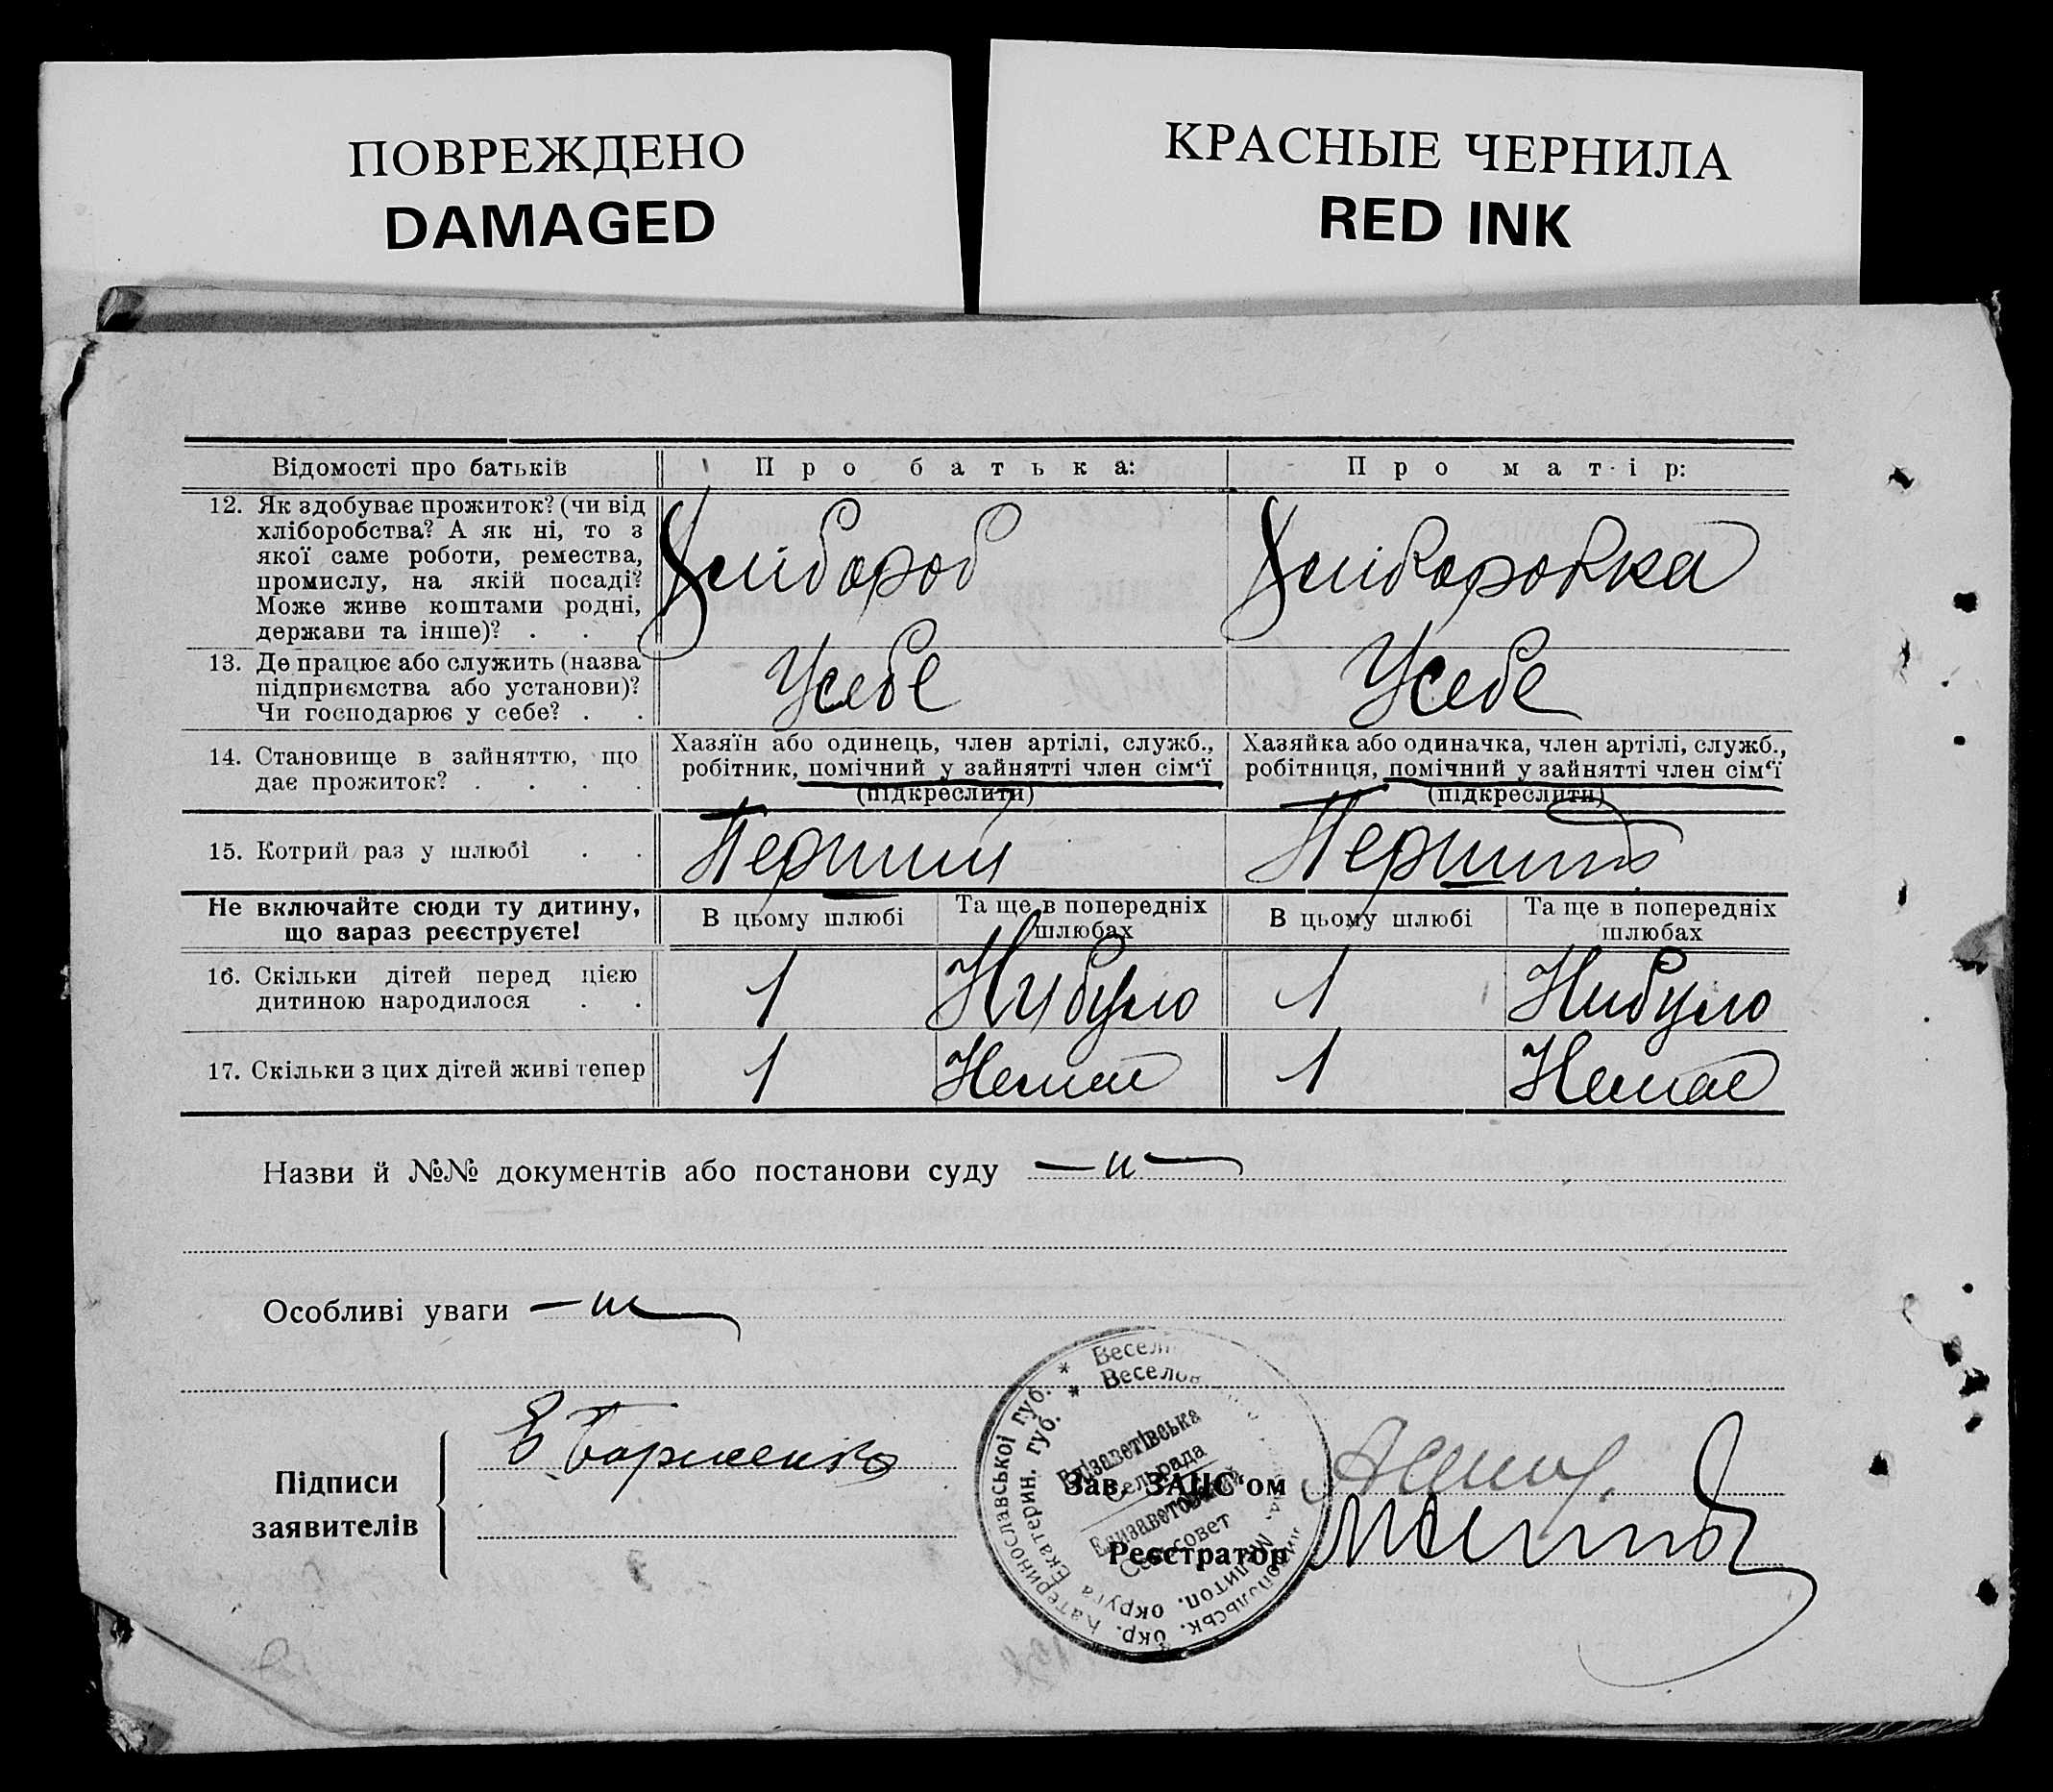 ПОВРЕЖДЕНО
DAMAGED
КРАСНЫЕ ЧЕРНИЛА
RED INK
Відомості про батьків
Про батька:
Про матір:
12. Як здобуває прожиток? (чи від
хліборобства? А як ні, то з
якої саме роботи, ремества,
промислу, на якій посаді?
Може живе коштами родні,
держави та інше)? . .
Хлібороб
Хліборобка
13. Де працює або служить (назва
підприємства або установи)?
Чи господарює у себе? . .
Усебе
Усебе
14. Становище в зайняттю, що
дає прожиток? . . . .
Хазяїн або одинець, член артілі, служб.,
робітник, помічний у зайнятті член сім'ї
(підкреслити)
Хазяйка або одиначка, член артілі, служб.,
робітниця, помічний у зайнятті член сім'ї
(підкреслити)
15. Котрий раз у шлюбі . .
Перший
Перший
Не включайте сюди ту дитину,
що зараз реєструєте!
В цьому шлюбі
Та ще в попередніх
шлюбах
В цьому шлюбі
Та ще в попередніх
шлюбах
16. Скільки дітей перед цією
дитиною народилося . .
1
Нибуло
1
Нибуло
17. Скільки з цих дітей живі тепер
1
Немає
1
Немає
Назви й №№ документів або постанови суду
Особливі уваги
Підписи
заявителів
Зав. ЗАЦС'ом
Реєстратор
Катеринославської губ. *
Екатерин. губ. *
Єлізаветівська
Сельрада
Елизаветовский
Сельсовет
Мелитоп. округа